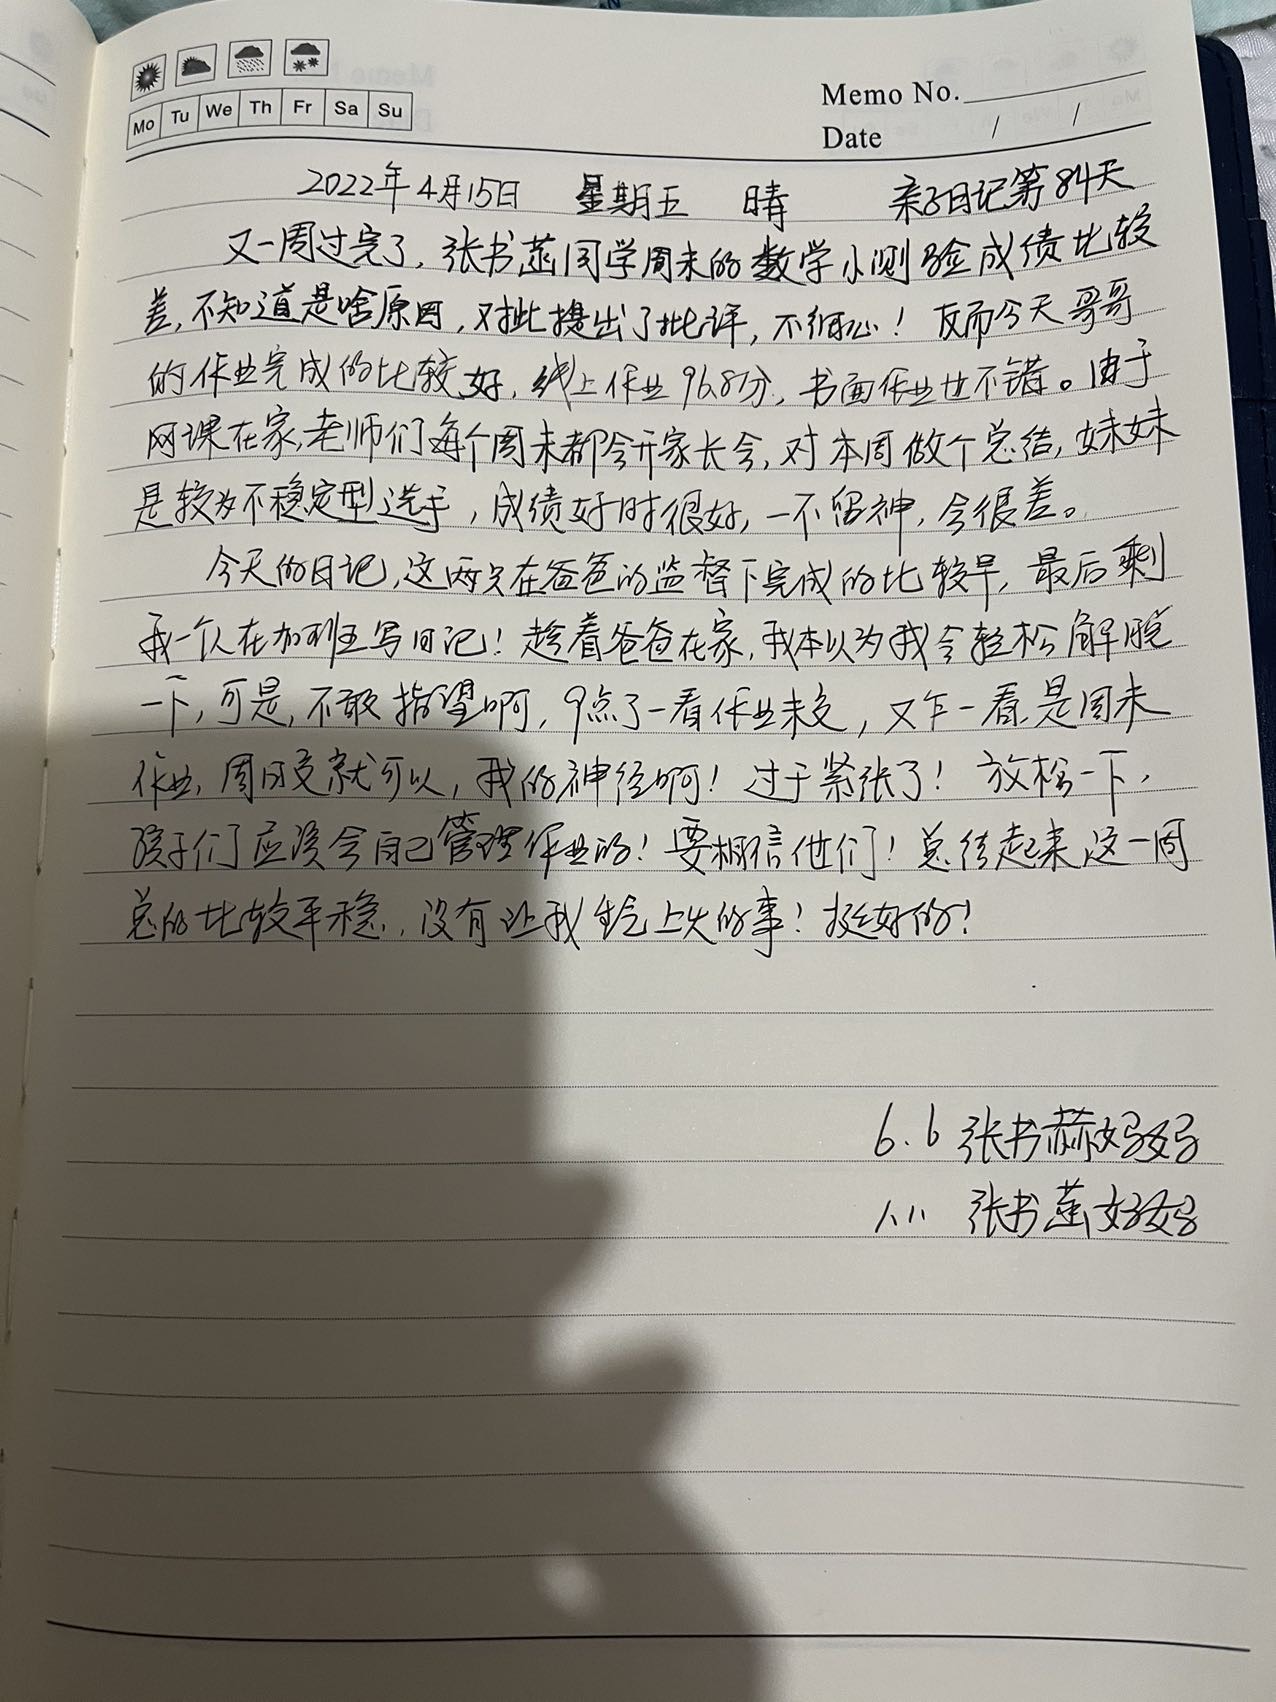 Mo Tu We Th Fr Sa Su
Memo No.
Date / /
2022年4月15日 星期五 晴 亲子日记第84天
又一周过完了，张书菡同学周末的数学小测验成绩比较
差，不知道是啥原因，对此提出了批评，不细心！反而今天哥哥
的作业完成的比较好，线上作业96.8分，书面作业也不错。由于
网课在家，老师们每个周末都会开家长会，对本周做个总结，妹妹
是较为不稳定型选手，成绩好时很好，一不留神，会很差。
今天的日记，这两只在爸爸的监督下完成的比较早，最后剩
我一个人在加班写日记！趁着爸爸在家，我本以为我会轻松解脱
一下，可是，不敢指望啊，9点了一看作业未交，又乍一看是周末
作业，周日交就可以，我的神经啊！过于紧张了！放松一下，
孩子们应该会自己管理作业的！要相信他们！总结起来这一周
总的比较平稳，没有让我生气上火的事！挺好的！
6.6 张书赫妈妈
1.11 张书菡妈妈